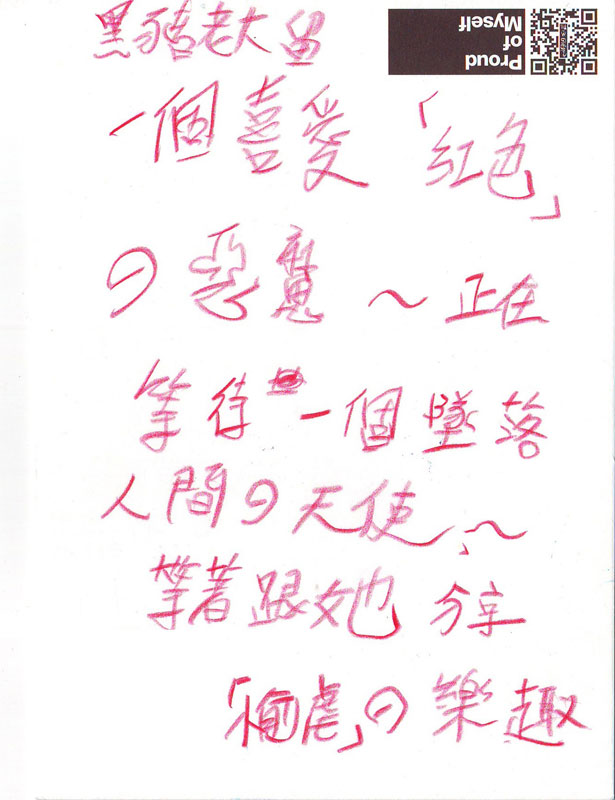 黑豬老大留
Proud
of
Myself
一個喜愛「紅色」
の惡魔～正在
等待一個墜落
人間の天使～
等著跟她分享
「 虐」の樂趣